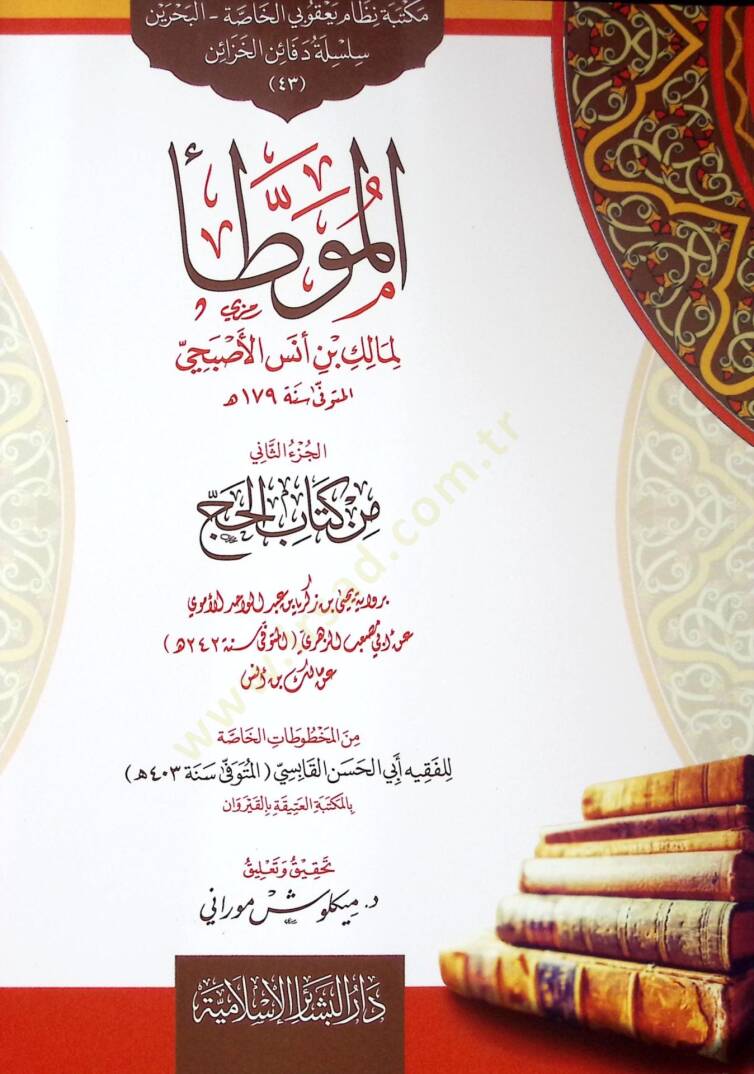 مكتبة نظام يعقوبي الخاصة - البحرين
سلسلة دفائن الخزائن
(٤٣)
المُوَطَّأ
لِمَالِكِ بْنِ أَنَس الأَصْبَحِيّ
المتوفى سنة ١٧٩ هـ
الجُزْءُ الثَّانِي
مِنْ كِتَابِ الحَجّ
برواية يحيى بن زكريا بن عبد الواحد الأموي
عن أبي مصعب الزهري (المتوفى سنة ٢٤٢ هـ)
عن مالك بن أنس
مِنَ المَخْطُوطَاتِ الخَاصَّة
لِلفَقِيه أَبِي الحَسَن القَابِسِيّ (المُتَوَفَّى سَنَة ٤٠٣ هـ)
بِالمَكْتَبَةِ العَتِيقَةِ بِالقَيْرَوَان
تَحْقِيقُ وَتَعْلِيقُ
د. ميكلوش موراني
دَارُ البَشَائِرِ الإِسْلَامِيَّة
www.irsad.com.tr